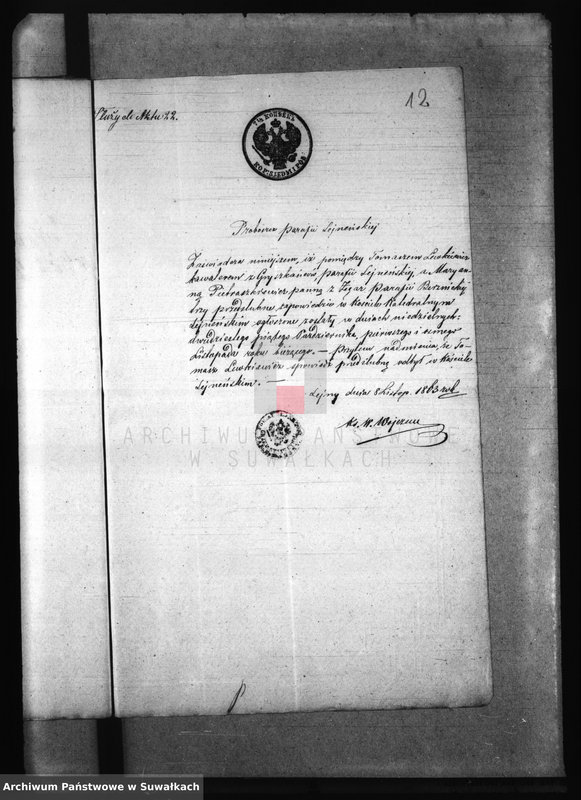 12
Służy do Aktu 22.
7½ KOPIEJEK
KOP. SIEDM I PÓŁ
Proboszcz parafii Sejneńskiej
Zaświadcza niniejszem, iż pomiędzy Tomaszem Luckiewicz
kawalerem z Gryszkańców, parafii Sejneńskiej, a Maryan-
ną Pietraszkiewicz panną z Żegar Parafii Berżnickiej
trzy przedślubne zapowiedzie w Kościele Katedralnym
Sejneńskim ogłoszone zostały w dniach niedzielnych:
dwudziestego piątego Października, pierwszego i ósmego
Listopada roku bieżącego. — Przytem nadmienia, że To-
masz Luckiewicz spowiedź przedślubną odbył w Kościele
Sejneńskim. —
Sejny dnia 8 Listop. 1863 rok
Ks. W.
ARCHIWUM PAŃSTWOWE
W SUWAŁKACH
Archiwum Państwowe w Suwałkach